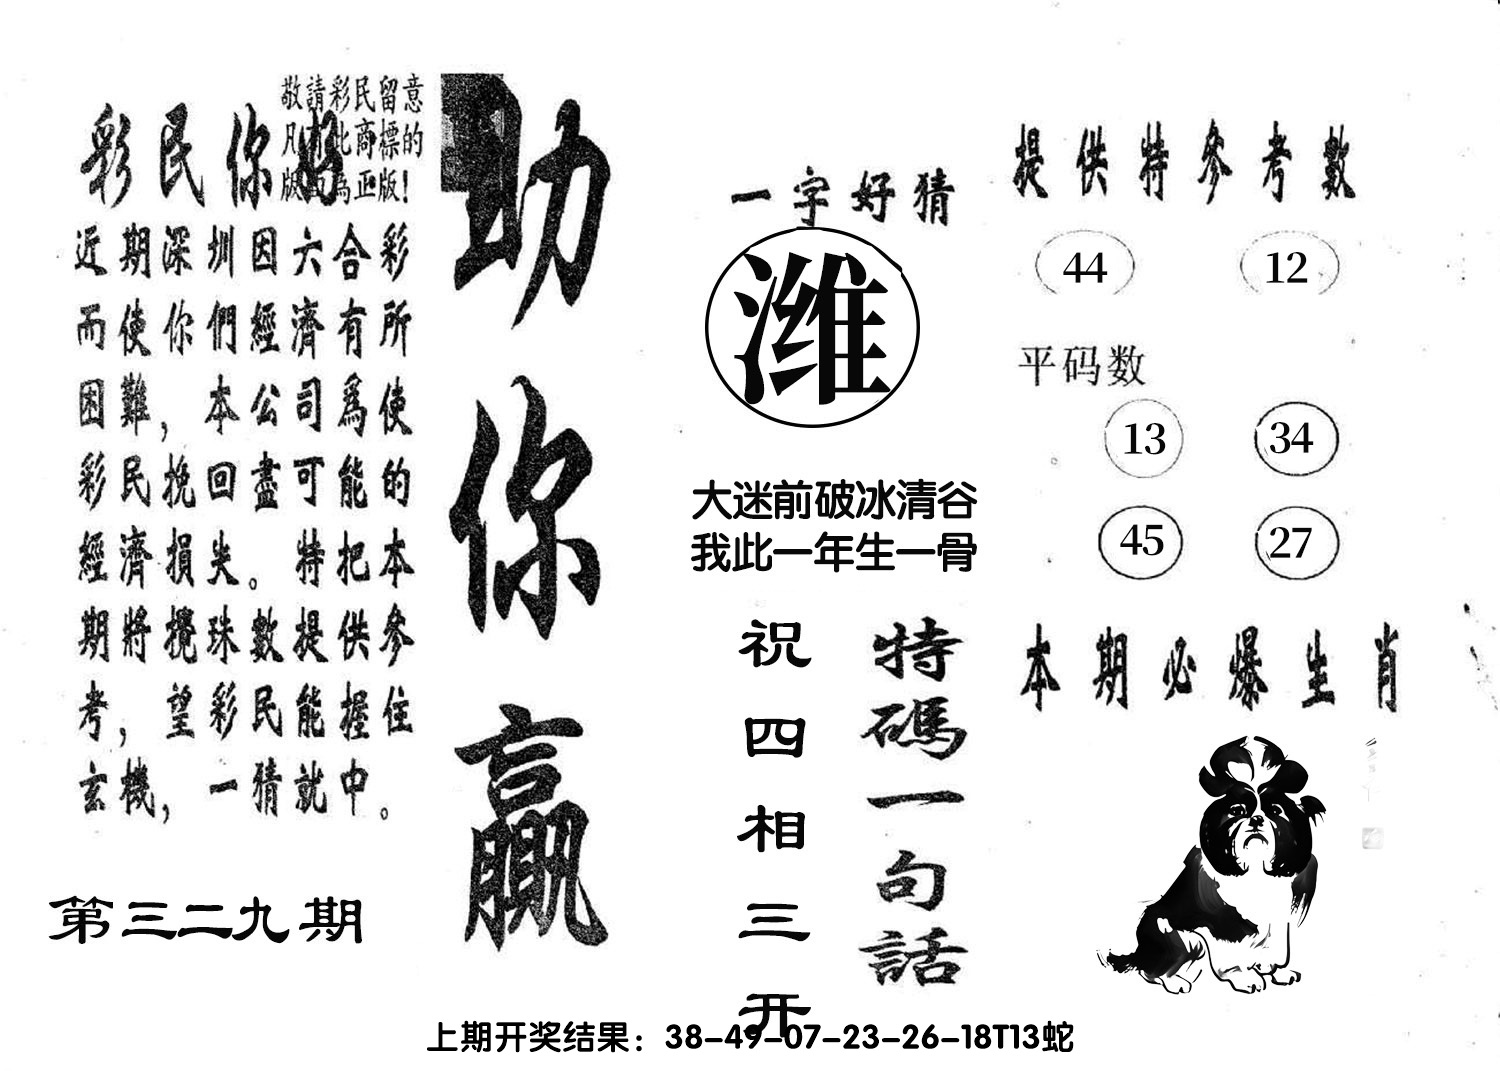 敬請彩民留意
凡有此商標的
版面為正版!
彩民你好
近期深圳因六合彩
而使你們經濟有所
困難，本公司爲使
彩民挽回盡可能的
經濟損失。特把本
期將攪珠數提供參
考，望彩民能握住
玄機，一猜就中。
第三二九期
助你赢
一字好猜
潍
大迷前破冰清谷
我此一年生一骨
特碼一句話
祝四相三开
提供特參考數
44 12
平码数
13 34
45 27
本期必爆生肖
上期开奖结果：38-49-07-23-26-18T13蛇